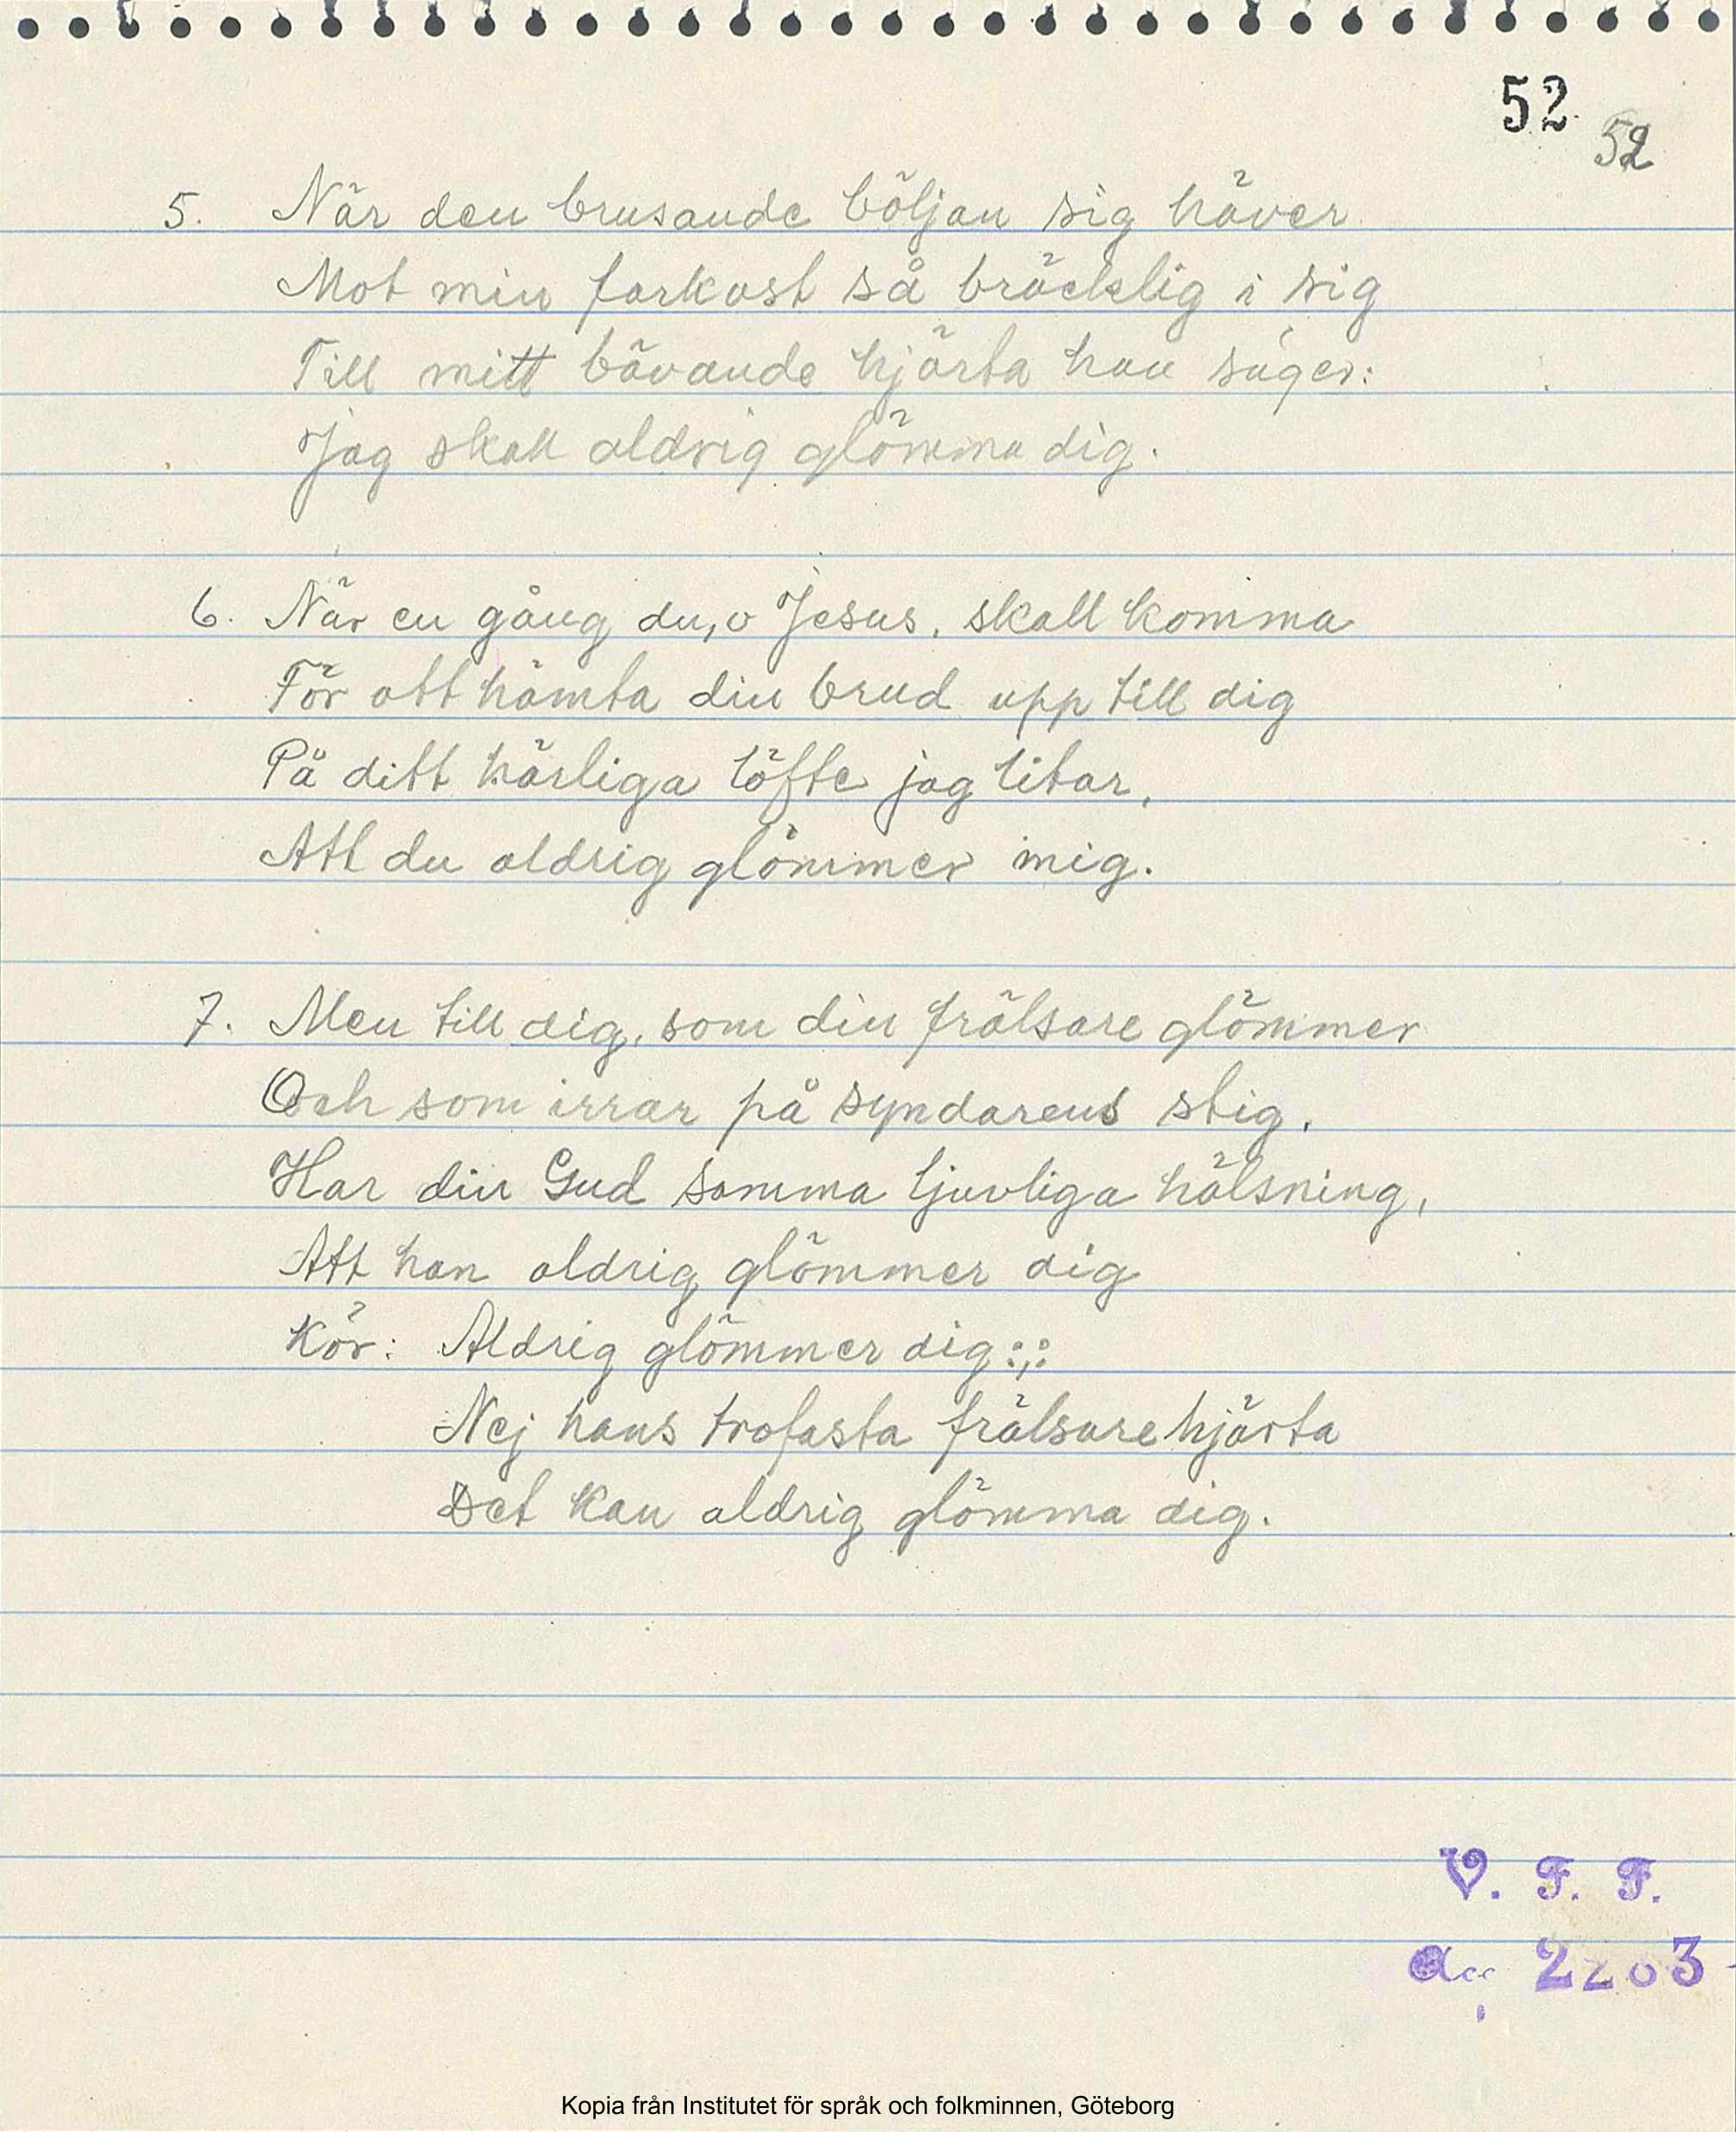 52
52
5. När den brusande böljan sig häver
Mot min farkost så bräcklig i sig
Till mitt bävande hjärta han säger:
Jag skall aldrig glömma dig.
6. När en gång du, o Jesus, skall komma
För att hämta din brud upp till dig
På ditt härliga löfte jag litar,
Att du aldrig glömmer mig.
7. Men till dig, som din frälsare glömmer
Och som irrar på syndarens stig,
Har din Gud samma ljuvliga hälsning,
Att han aldrig glömmer dig
Kör: Aldrig glömmer dig :,:
Nej hans trofasta frälsarehjärta
Det kan aldrig glömma dig.
V. F. F.
Acc 2203
Kopia från Institutet för språk och folkminnen, Göteborg